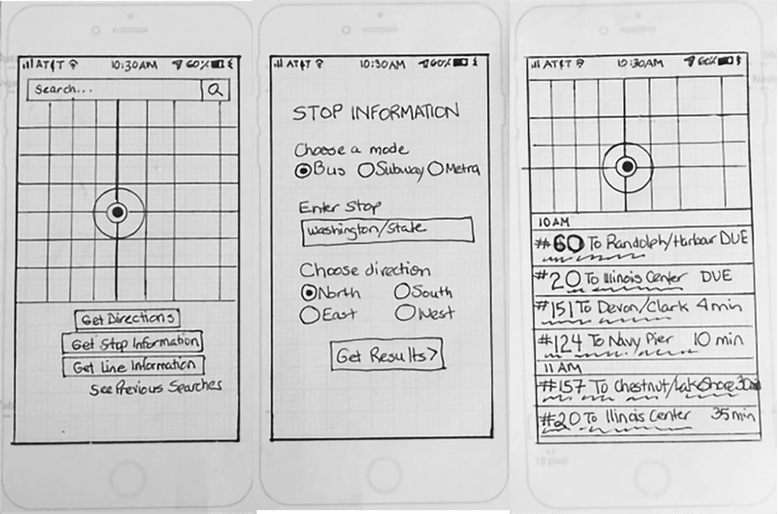 AT&T 10:30AM 60%
Search...
Get Directions
Get Stop Information
Get Line Information
See Previous Searches
AT&T 10:30AM 60%
STOP INFORMATION
Choose a mode
Bus Subway Metra
Enter Stop
Washington/State
Choose direction
North South
East West
Get Results>
AT&T 10:30AM 60%
10AM
#60 To Randolph/Harbour DUE
#20 To Illinois Center DUE
#151 To Devon/Clark 4 min
#124 To Navy Pier 10 min
11 AM
#157 To Chestnut/LakeShore 30m
#20 To Illinois Center 35 min